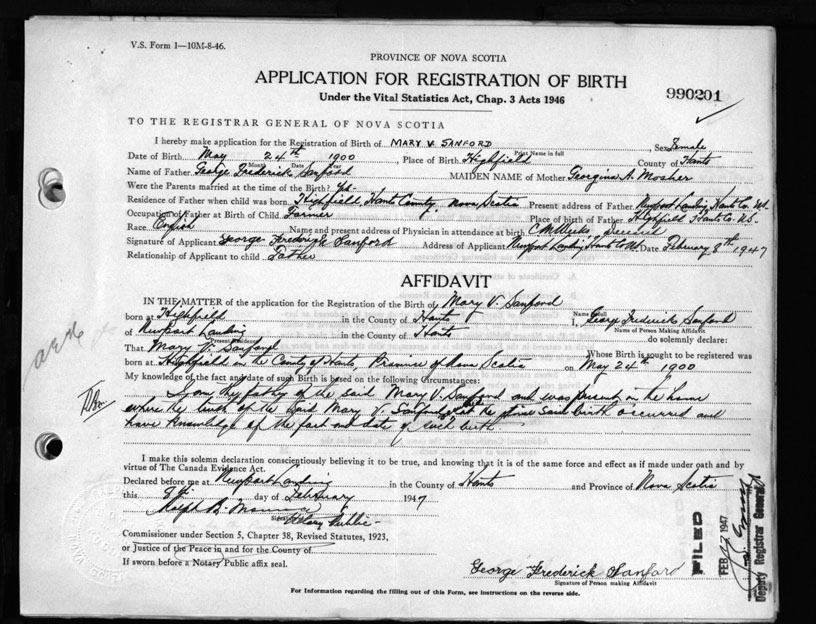 V.S. Form 1—10M-8-46.
PROVINCE OF NOVA SCOTIA
APPLICATION FOR REGISTRATION OF BIRTH
Under the Vital Statistics Act, Chap. 3 Acts 1946
990201
TO THE REGISTRAR GENERAL OF NOVA SCOTIA
I hereby make application for the Registration of Birth of MARY V. SANFORD Sex Female
Print Name in full
Date of Birth May 24th 1900 Place of Birth Highfield County of Hants
Month Date Year
Name of Father George Frederick Sanford MAIDEN NAME of Mother Georgina A. Mosher
Were the Parents married at the time of the Birth? Yes
Residence of Father when child was born Highfield, Hants County, Nova Scotia Present address of Father Newport Landing Hants Co. N.S.
Occupation of Father at Birth of Child Farmer Place of birth of Father Highfield Hants Co. N.S.
Race English Name and present address of Physician in attendance at birth C M Weeks deceased
Signature of Applicant George Frederick Sanford Address of Applicant Newport Landing Hants Co NS Date February 8th 1947
Relationship of Applicant to child Father
AFFIDAVIT
IN THE MATTER of the application for the Registration of the Birth of Mary V. Sanford
born at Highfield in the County of Hants I, George Frederick Sanford
Name in full
Name of Person Making Affidavit
of Newport Landing in the County of Hants do solemnly declare:
Present Residence
That Mary V. Sanford Whose Birth is sought to be registered was
born at Highfield in the County of Hants, Province of Nova Scotia on May 24th 1900
My knowledge of the fact and date of such Birth is based on the following Circumstances:
I am the father of the said Mary V. Sanford and was present in the home
where the birth of the said Mary V. Sanford at the time said birth occurred and
have knowledge of the fact and date of such birth
I make this solemn declaration conscientiously believing it to be true, and knowing that it is of the same force and effect as if made under oath and by
virtue of The Canada Evidence Act.
Declared before me at Newport Landing in the County of Hants and Province of Nova Scotia
this day of February 1947
Ralph B.
Notary Public
Commissioner under Section 5, Chapter 38, Revised Statutes, 1923,
or Justice of the Peace in and for the County of
If sworn before a Notary Public affix seal.
George Frederick Sanford
Signature of Person making Affidavit
FILED
FEB 1947
Deputy Registrar General
For Information regarding the filling out of this Form, see Instructions on the reverse side.